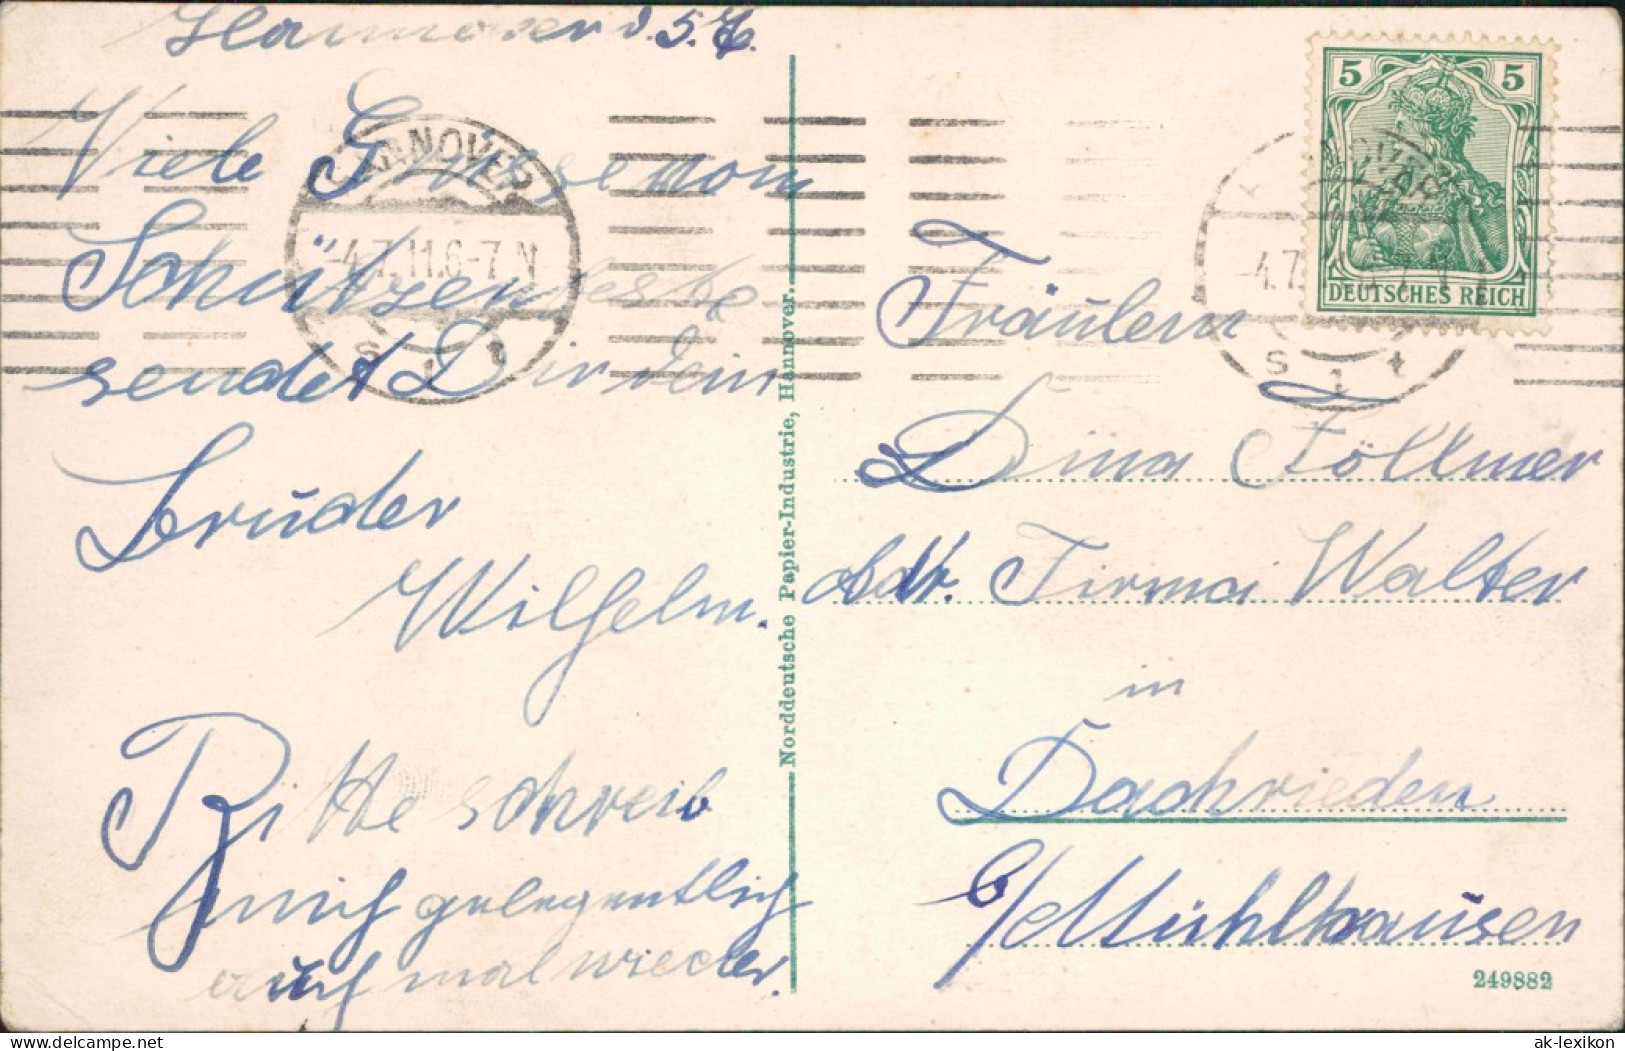 Hannover d. 5.7.
Viele Grüße vom
Schützenfeste
sendet Dir dein
Bruder
Wilhelm.
Bitte schreib
mich gelegentlich
auch mal wieder.
HANNOVER
-4.7.11.6-7 N
S 1 t
Norddeutsche Papier-Industrie, Hannover.
5 5
DEUTSCHES REICH
S 1 t
Fräulein
Dina Föllmer
Adr. Firma Walter
in
Dachrieden
b/Mühlhausen
249882
ak-lexikon.com